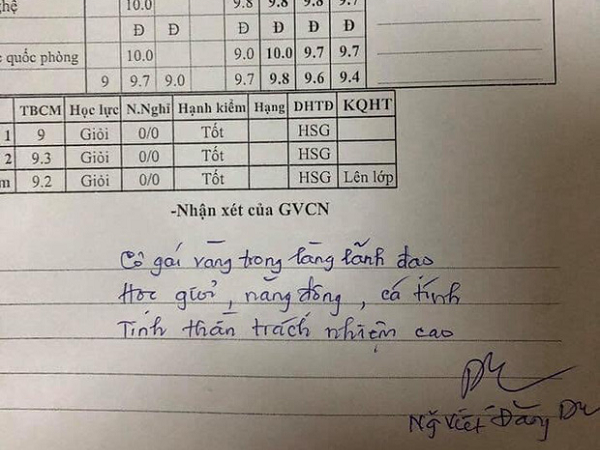 10.0 9.8 9.8 9.8 9.7
Đ Đ Đ Đ Đ Đ
quốc phòng 10.0 9.0 10.0 9.7 9.7
9 9.7 9.0 9.7 9.8 9.6 9.4
TBCM Học lực N.Nghỉ Hạnh kiểm Hạng DHTĐ KQHT
1 9 Giỏi 0/0 Tốt HSG
2 9.3 Giỏi 0/0 Tốt HSG
9.2 Giỏi 0/0 Tốt HSG Lên lớp
-Nhận xét của GVCN
Cô gái vàng trong làng lãnh đạo
Học giỏi, năng động, cá tính
Tinh thần trách nhiệm cao
Ng Viết Đăng Du